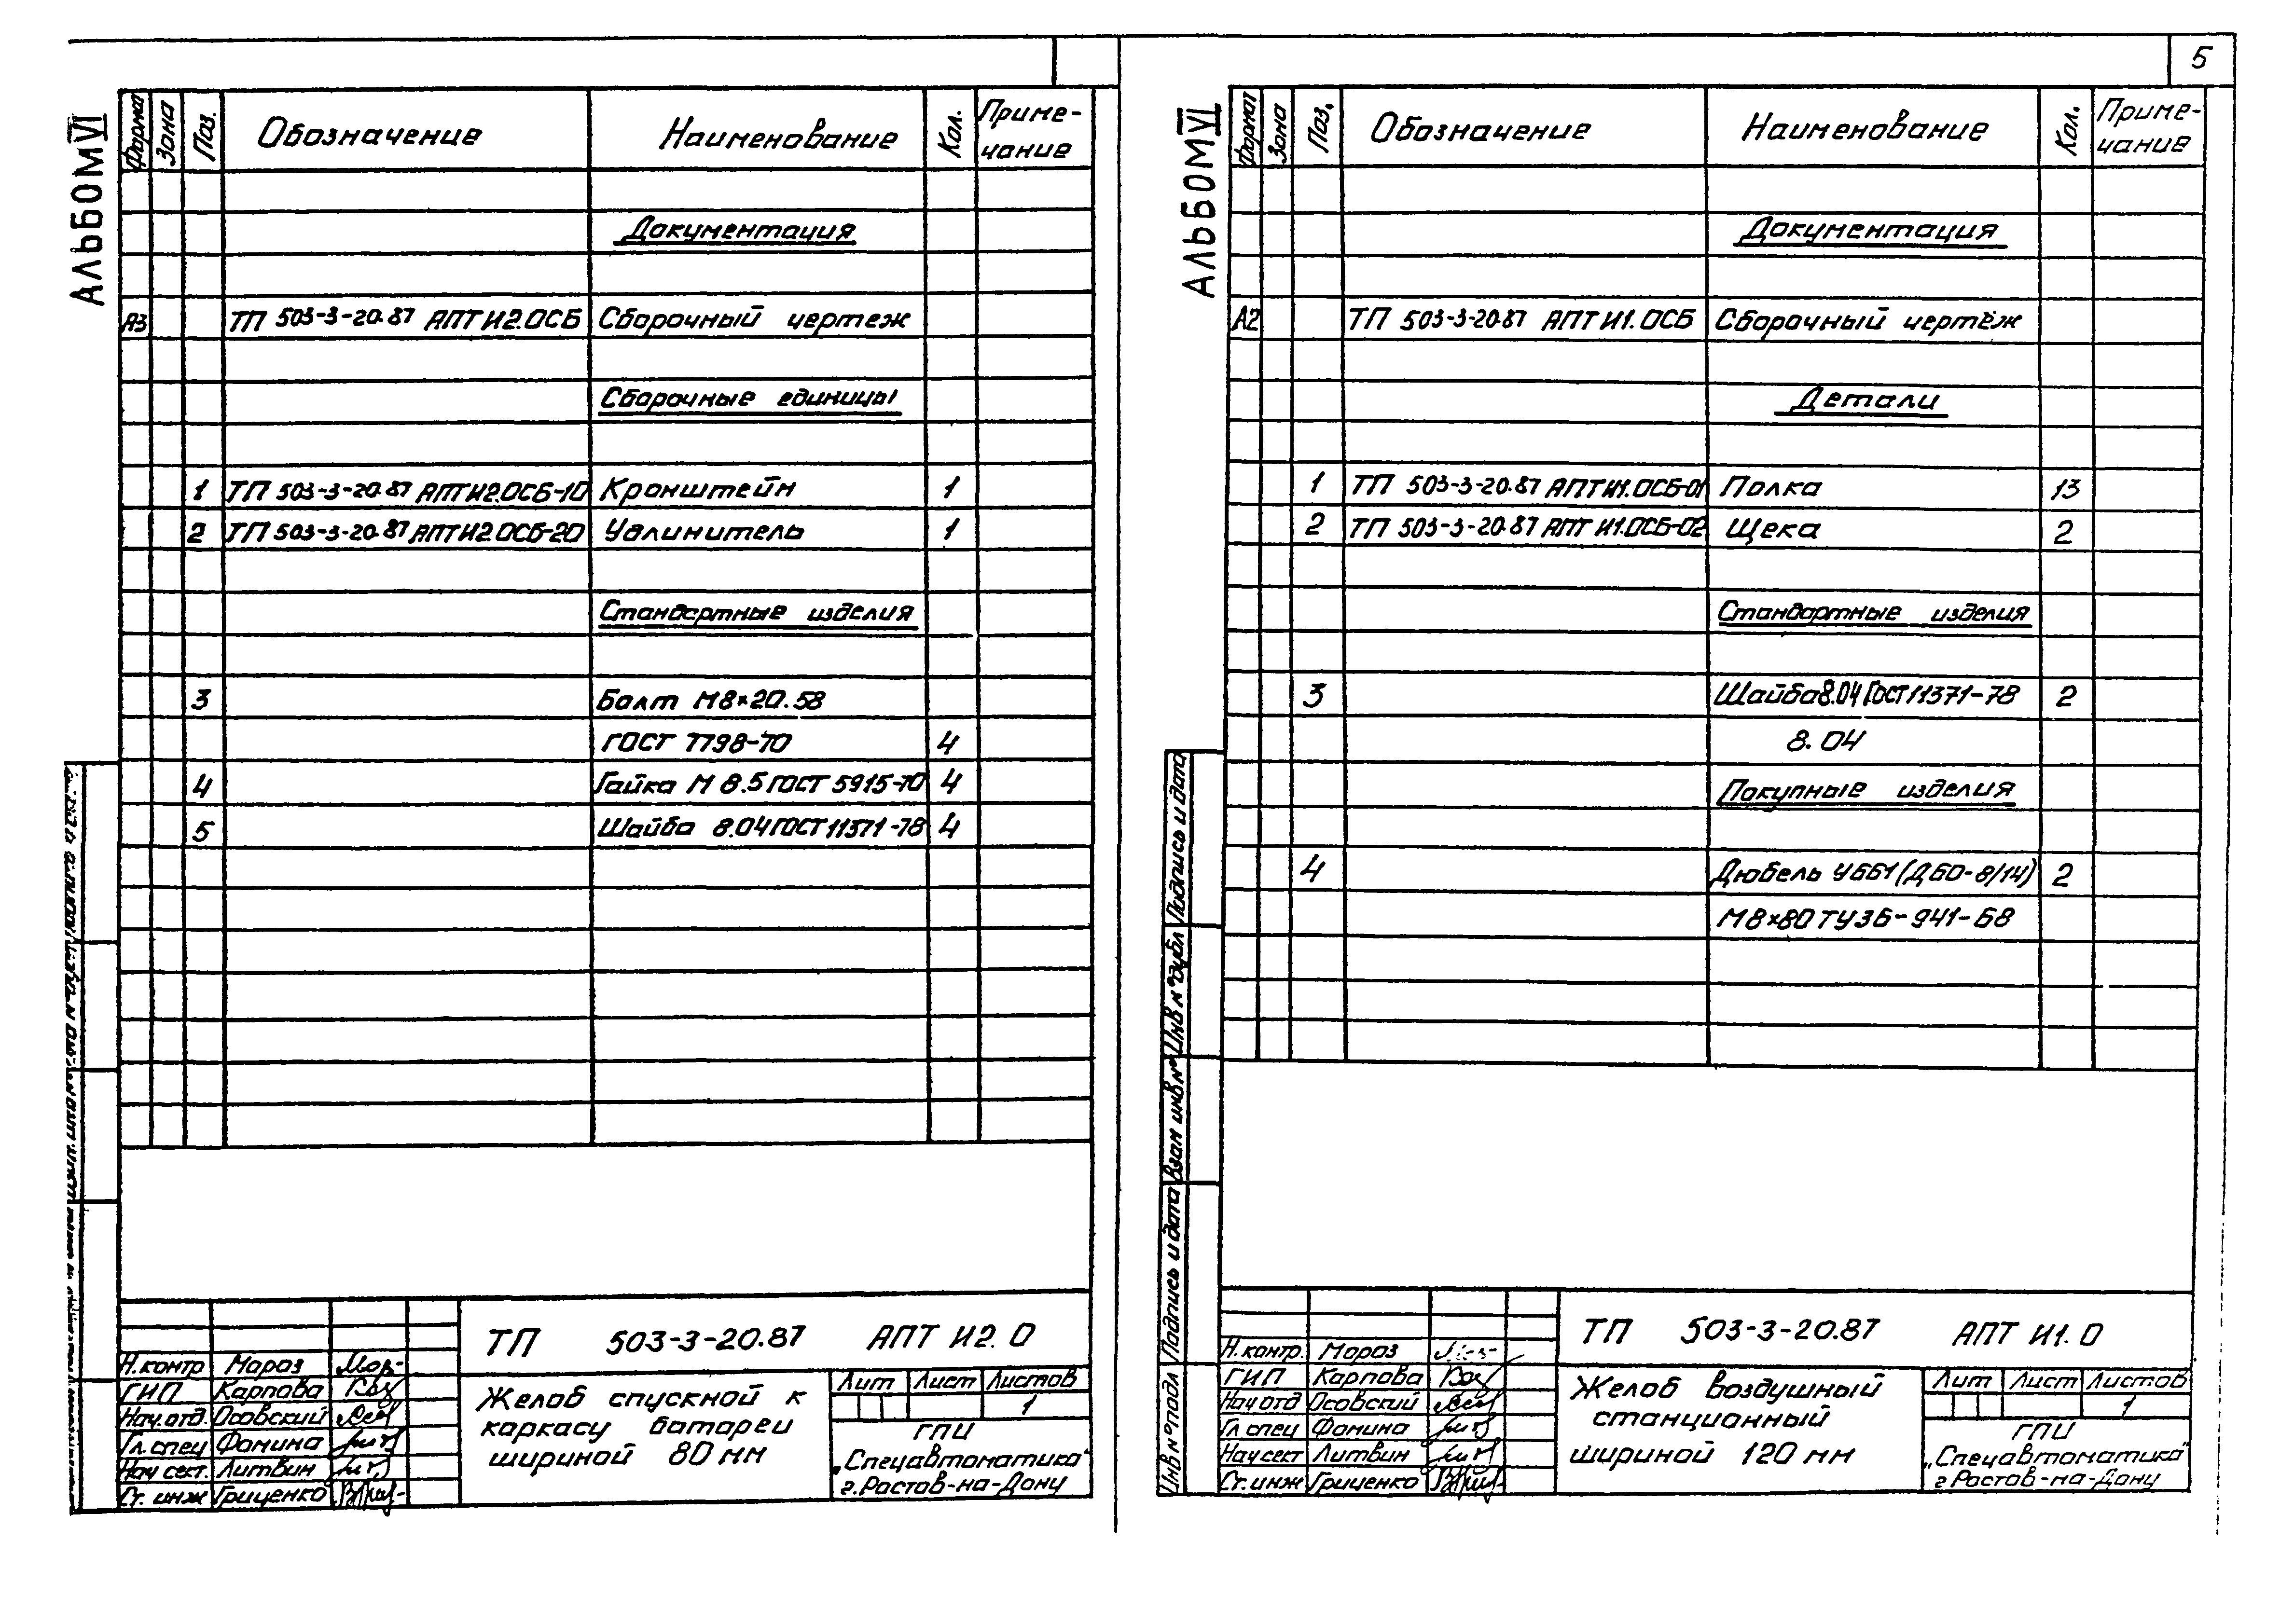 5
АЛЬБОМ VI
Формат Зона Поз. Обозначение Наименование Кол. Приме-
чание
Документация
А3 ТП 503-3-20.87 АПТ И2.ОСБ Сборочный чертеж
Сборочные единицы
1 ТП 503-3-20.87 АПТ И2.ОСБ-10 Кронштейн 1
2 ТП 503-3-20.87 АПТ И2.ОСБ-20 Удлинитель 1
Стандартные изделия
3 Болт М8×20.58
ГОСТ 7798-70 4
4 Гайка М 8.5 ГОСТ 5915-70 4
5 Шайба 8.04 ГОСТ 11371-78 4
ТП 503-3-20.87 АПТ И2.О
Н.контр Мороз
ГИП Карпова
Нач.отд. Осовский
Гл.спец Фомина
Нач сект. Литвин
Ст. инж Гриценко
Желоб спускной к
каркасу батареи
шириной 80 мм
Лит Лист Листов
1
ГПИ
„Спецавтоматика"
г.Ростов-на-Дону
АЛЬБОМ VI
Формат Зона Поз. Обозначение Наименование Кол. Приме-
чание
Документация
А2 ТП 503-3-20.87 АПТ И1.ОСБ Сборочный чертёж
Детали
1 ТП 503-3-20.87 АПТ И1.ОСБ-01 Полка 13
2 ТП 503-3-20.87 АПТ И1.ОСБ-02 Щека 2
Стандартные изделия
3 Шайба 8.04 ГОСТ 11371-78 2
8.04
Покупные изделия
4 Дюбель У661 (Д60-8/14) 2
М8×80 ТУ36-941-68
Подпись и дата
Инв № дубл
Взам инв №
Подпись и дата
Инв № подл
ТП 503-3-20.87 АПТ И1.О
Н.контр. Мороз
ГИП Карпова
Нач отд Осовский
Гл спец Фомина
Нач сект Литвин
Ст.инж Гриценко
Желоб воздушный
станционный
шириной 120 мм
Лит Лист Листов
1
ГПИ
„Спецавтоматика"
г Ростов-на-Дону